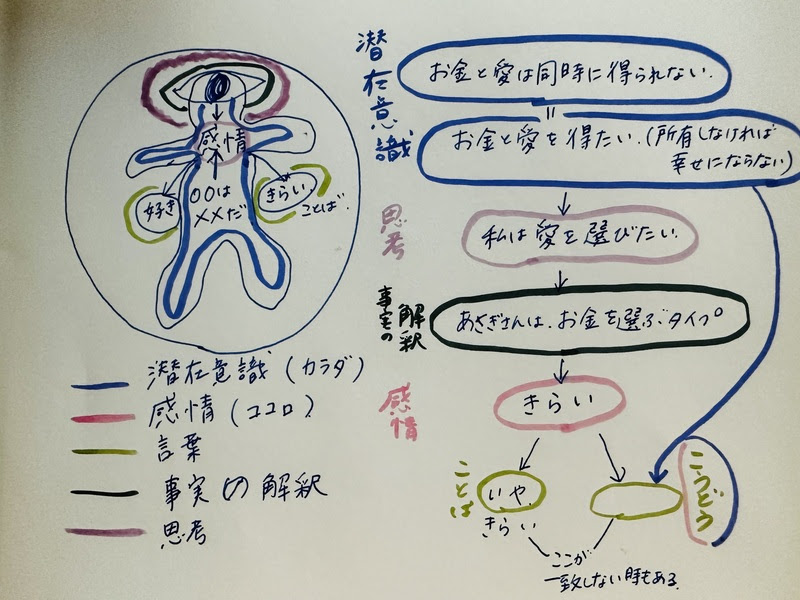 感情
好き
〇〇は
××だ
きらい
ことば
潜在意識(カラダ)
感情(ココロ)
言葉
事実の解釈
思考
潜在意識
お金と愛は同時に得られない.
=
お金と愛を得たい.(所有しなければ
幸せにならない)
思考
私は愛を選びたい.
事実の解釈
あさぎさんは、お金を選ぶタイプ
感情
きらい
ことば
いや
きらい
こうどう
ここが
一致しない時もある.